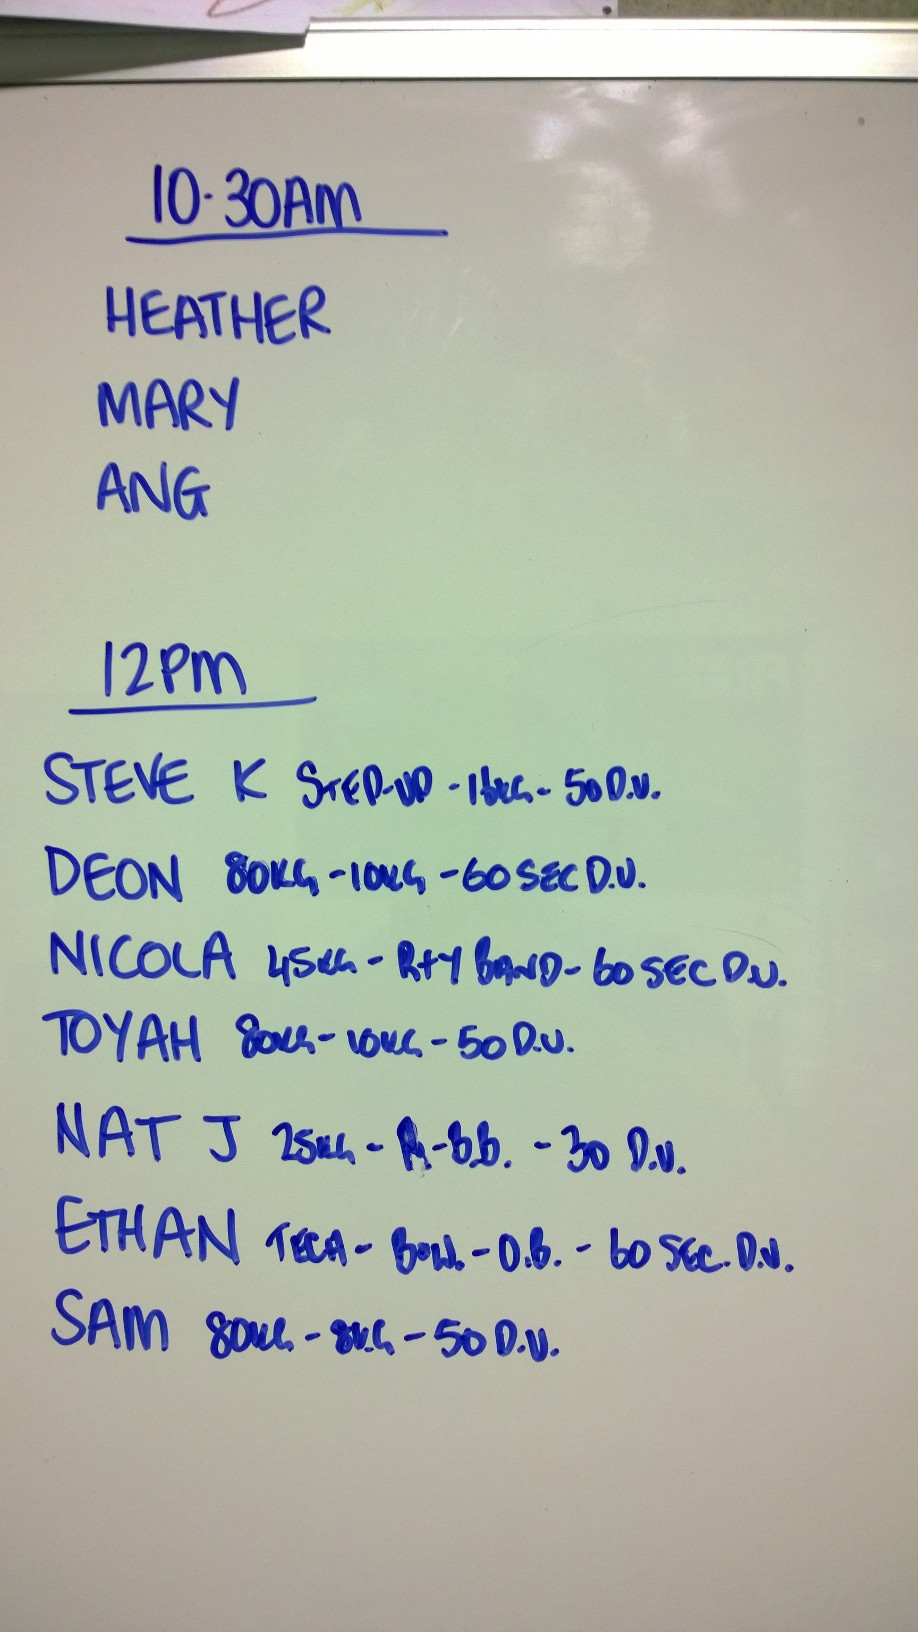 10.30AM
HEATHER
MARY
ANG
12PM
STEVE K STEP-UP - 16KG - 50 D.U.
DEON 80KG - 10KG - 60 SEC D.U.
NICOLA 45KG - R+Y BAND - 60 SEC D.U.
TOYAH 80KG - 10KG - 50 D.U.
NAT J 25KG - - B.B. - 30 D.U.
ETHAN TECH - BOW. - O.B. - 60 SEC. D.U.
SAM 80KG - 8KG - 50 D.U.